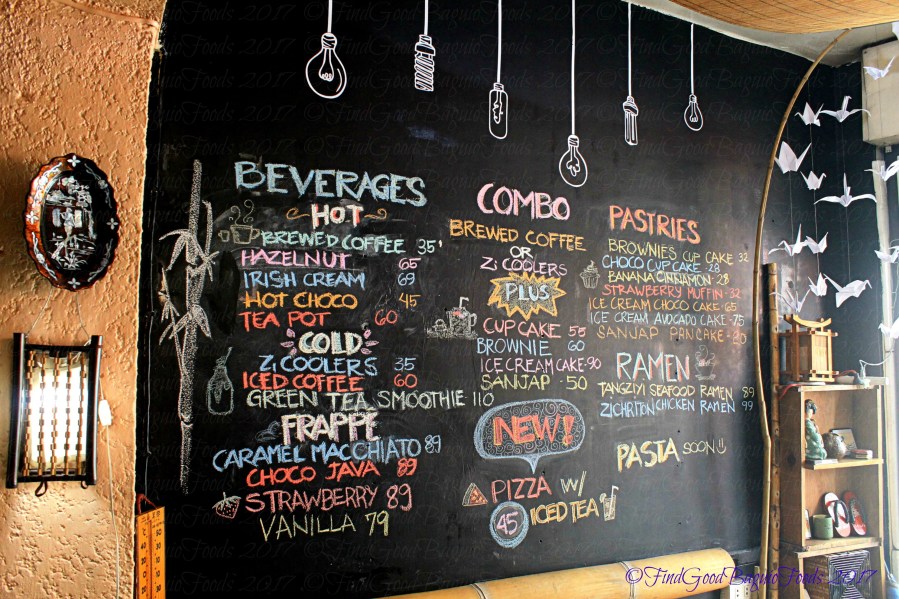 BEVERAGES
HOT
BREWED COFFEE 35
HAZELNUT 65
IRISH CREAM 69
HOT CHOCO 45
TEA POT 60
COLD
Zi COOLERS 35
ICED COFFEE 60
GREEN TEA SMOOTHIE 110
FRAPPE
CARAMEL MACCHIATO 89
CHOCO JAVA 89
STRAWBERRY 89
VANILLA 79
COMBO
BREWED COFFEE
OR
Zi COOLERS
PLUS
CUP CAKE 55
BROWNIE 60
ICE CREAM CAKE-90
SANJAP -50
NEW!
PIZZA W/
45 ICED TEA
PASTRIES
BROWNIES CUP CAKE 32
CHOCO CUP CAKE -28
BANANA CINNAMON -28
STRAWBERRY MUFFIN -32
ICE CREAM CHOCO CAKE-65
ICE CREAM AVOCADO CAKE-75
SANJAP PANCAKE -20
RAMEN
TANGZIYI SEAFOOD RAMEN 89
ZICHRITON CHICKEN RAMEN 99
PASTA SOON
©FindGoodBaguioFoods 2017